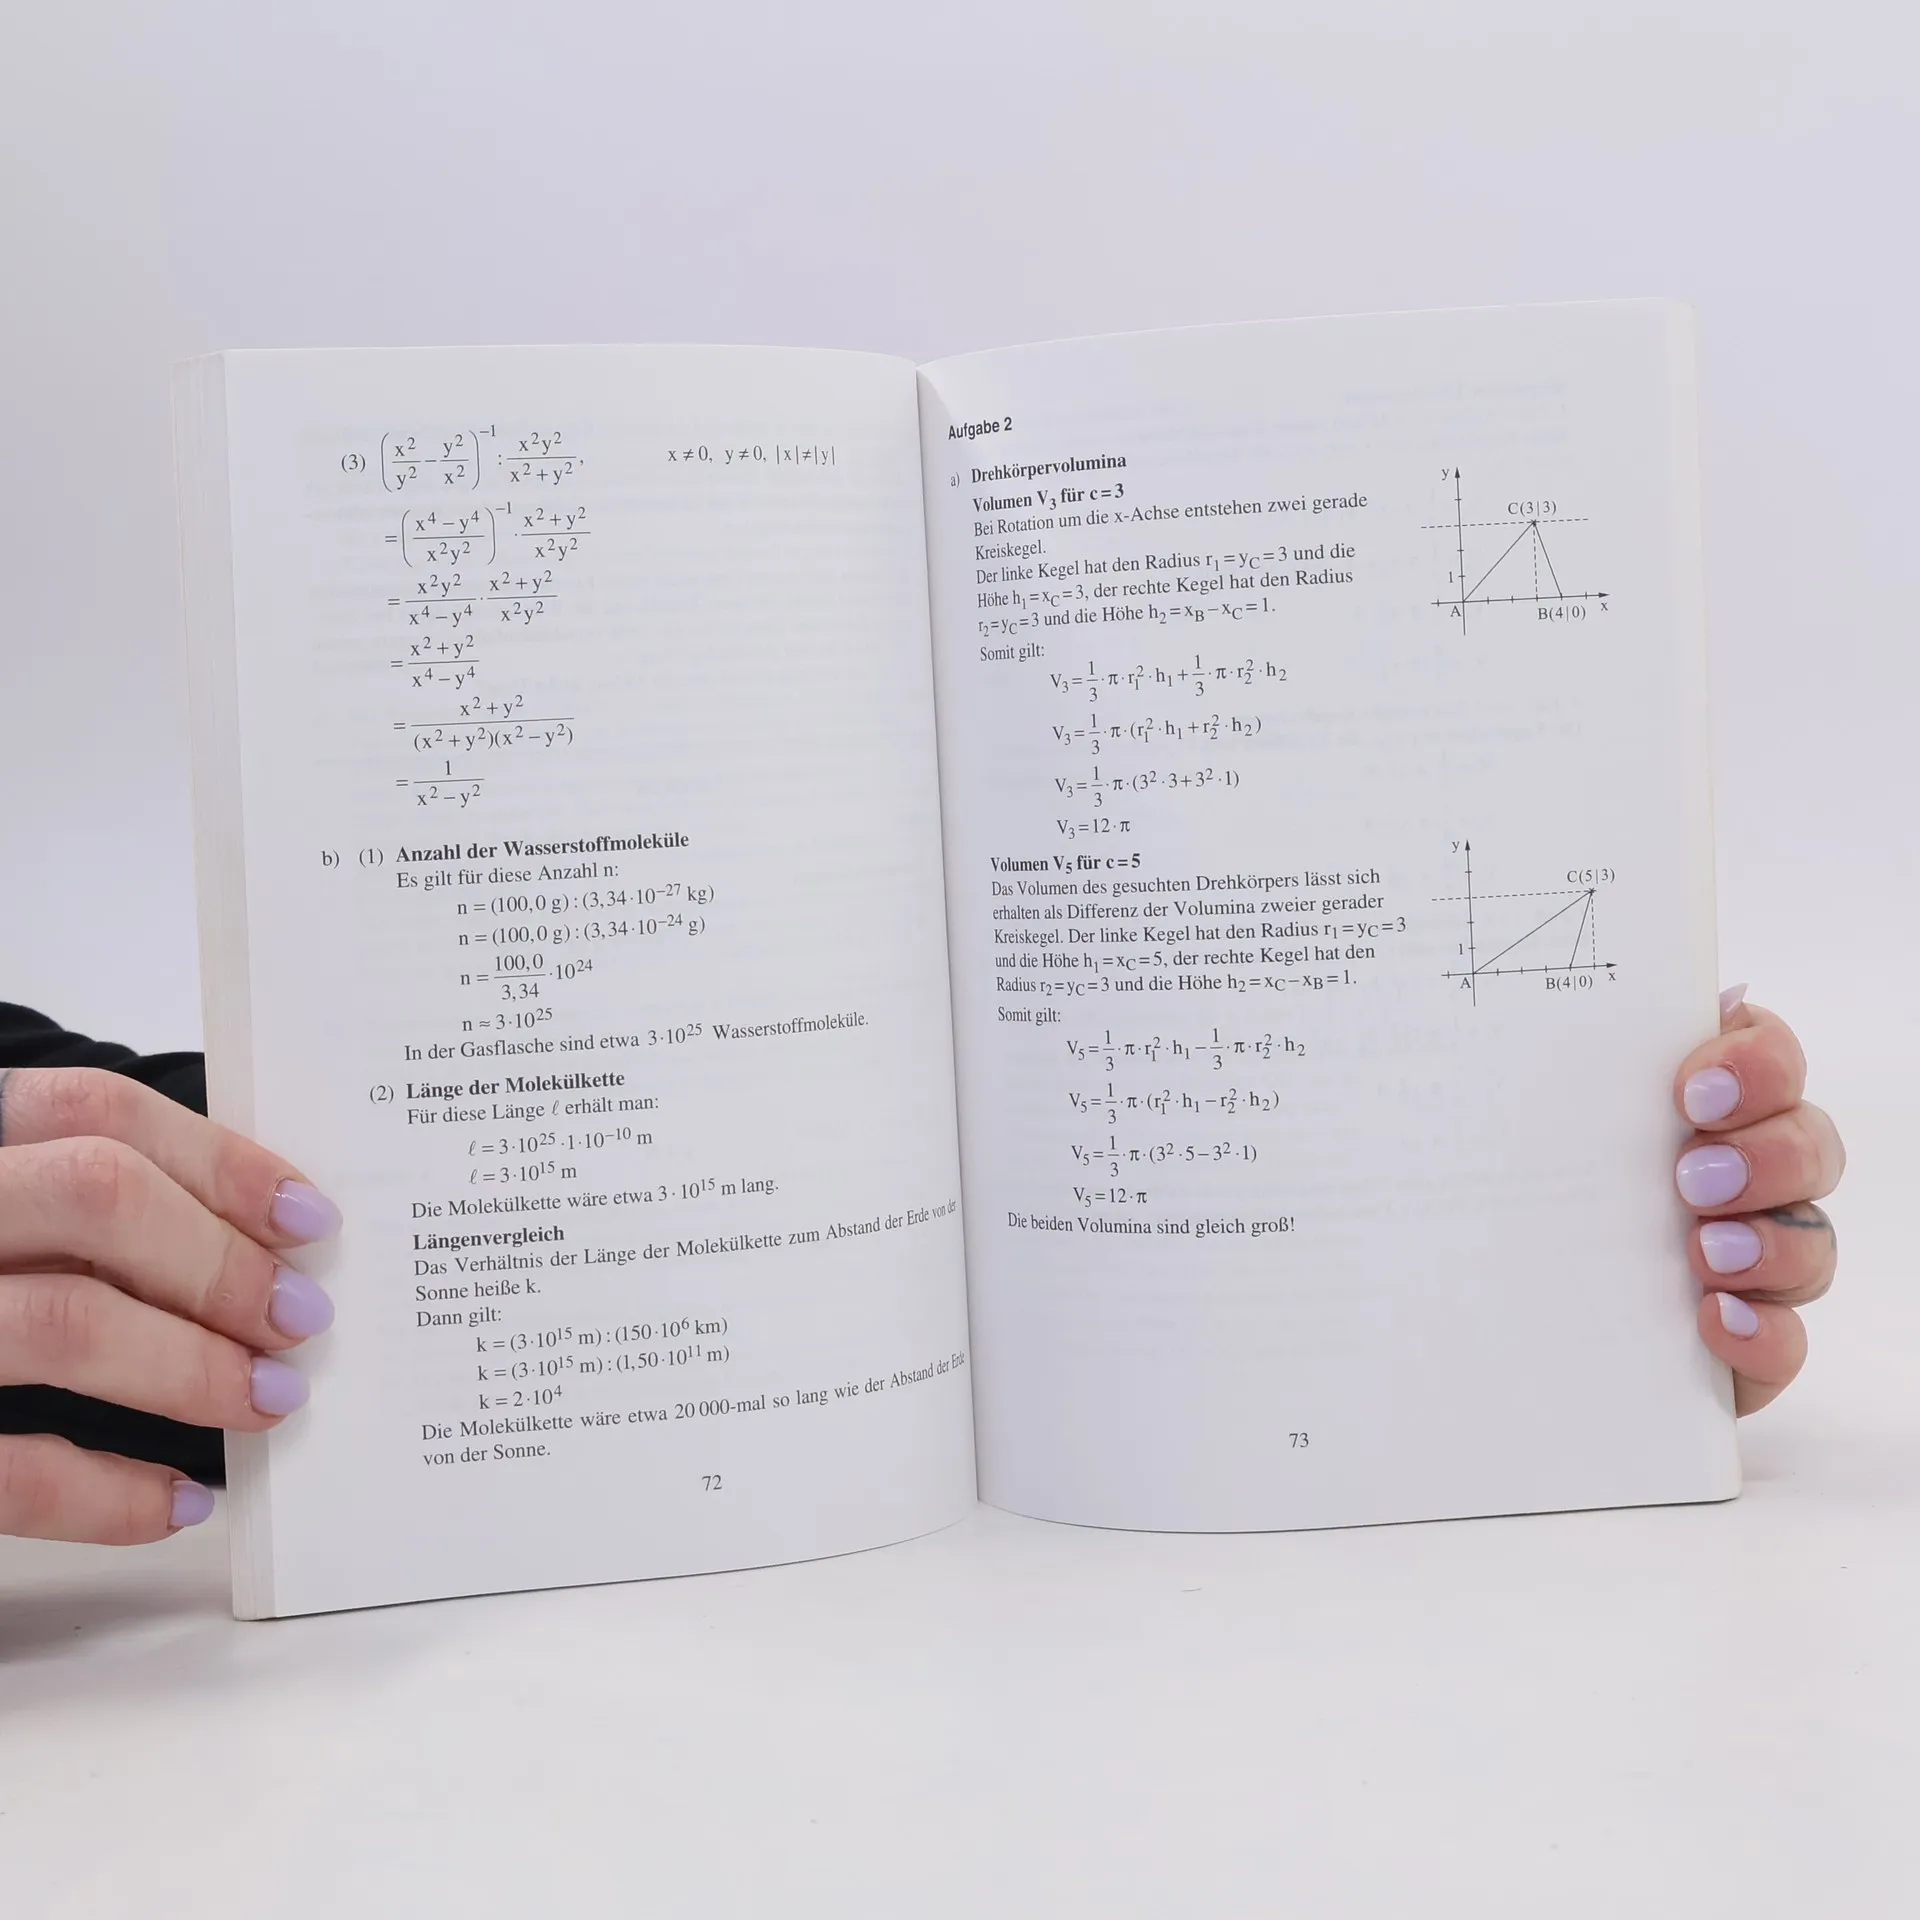 (3) (x²/y² − y²/x²)⁻¹ : x²y²/(x² + y²), x ≠ 0, y ≠ 0, |x| ≠ |y|
= ((x⁴ − y⁴)/(x²y²))⁻¹ · (x² + y²)/(x²y²)
= x²y²/(x⁴ − y⁴) · (x² + y²)/(x²y²)
= (x² + y²)/(x⁴ − y⁴)
= (x² + y²)/((x² + y²)(x² − y²))
= 1/(x² − y²)
b) (1) Anzahl der Wasserstoffmoleküle
Es gilt für diese Anzahl n:
n = (100,0 g) : (3,34 · 10⁻²⁷ kg)
n = (100,0 g) : (3,34 · 10⁻²⁴ g)
n = 100,0/3,34 · 10²⁴
n ≈ 3 · 10²⁵
In der Gasflasche sind etwa 3 · 10²⁵ Wasserstoffmoleküle.
(2) Länge der Molekülkette
Für diese Länge ℓ erhält man:
ℓ = 3 · 10²⁵ · 1 · 10⁻¹⁰ m
ℓ = 3 · 10¹⁵ m
Die Molekülkette wäre etwa 3 · 10¹⁵ m lang.
Längenvergleich
Das Verhältnis der Länge der Molekülkette zum Abstand der Erde von der
Sonne heiße k.
Dann gilt:
k = (3 · 10¹⁵ m) : (150 · 10⁶ km)
k = (3 · 10¹⁵ m) : (1,50 · 10¹¹ m)
k = 2 · 10⁴
Die Molekülkette wäre etwa 20 000-mal so lang wie der Abstand der Erde
von der Sonne.
72
Aufgabe 2
a) Drehkörpervolumina
Volumen V₃ für c = 3
Bei Rotation um die x-Achse entstehen zwei gerade
Kreiskegel.
Der linke Kegel hat den Radius r₁ = y_C = 3 und die
Höhe h₁ = x_C = 3, der rechte Kegel hat den Radius
r₂ = y_C = 3 und die Höhe h₂ = x_B − x_C = 1.
Somit gilt:
y
C(3|3)
1
A
B(4|0)
x
V₃ = 1/3 · π · r₁² · h₁ + 1/3 · π · r₂² · h₂
V₃ = 1/3 · π · (r₁² · h₁ + r₂² · h₂)
V₃ = 1/3 · π · (3² · 3 + 3² · 1)
V₃ = 12 · π
Volumen V₅ für c = 5
Das Volumen des gesuchten Drehkörpers lässt sich
erhalten als Differenz der Volumina zweier gerader
Kreiskegel. Der linke Kegel hat den Radius r₁ = y_C = 3
und die Höhe h₁ = x_C = 5, der rechte Kegel hat den
Radius r₂ = y_C = 3 und die Höhe h₂ = x_C − x_B = 1.
Somit gilt:
y
C(5|3)
1
A
B(4|0)
x
V₅ = 1/3 · π · r₁² · h₁ − 1/3 · π · r₂² · h₂
V₅ = 1/3 · π · (r₁² · h₁ − r₂² · h₂)
V₅ = 1/3 · π · (3² · 5 − 3² · 1)
V₅ = 12 · π
Die beiden Volumina sind gleich groß!
73